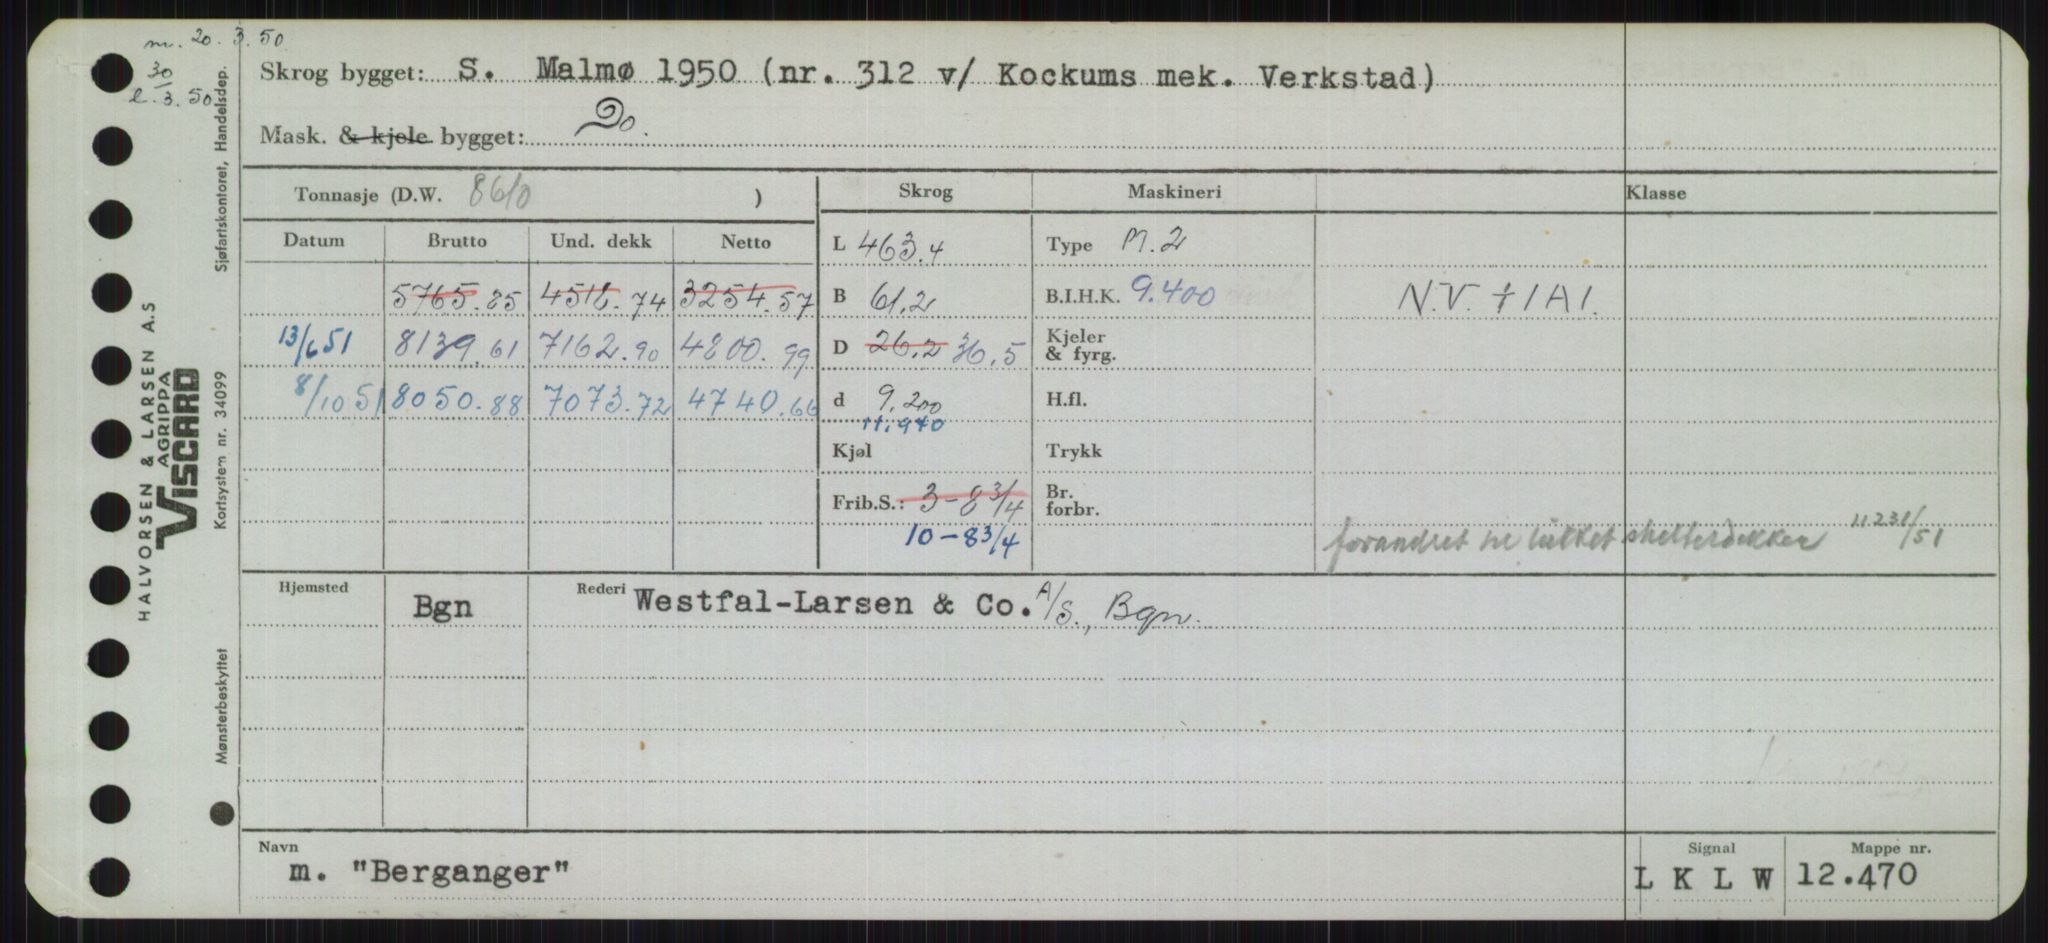 m. 20.3.50
30
l. 3. 50
Skrog bygget: S. Malmø 1950 (nr. 312 v/ Kockums mek. Verkstad)
Mask. & kjele bygget: Do.
Tonnasje (D.W. 8610 )
Skrog Maskineri Klasse
Datum Brutto Und. dekk Netto
L 463.4 Type M.2
5765.85 4518.74 3254.57
B 61.2 B.I.H.K. 9.400 N.V. † 1A1.
13/6 51 8139.61 7162.90 4800.99
D 26.2 36.5 Kjeler & fyrg.
8/10 51 8050.88 7073.72 4740.66
d 9.200 H.fl.
11.940
Kjøl Trykk
Frib.S.: 3-8 3/4 Br. forbr.
10-8 3/4
forandret til lukket shelterdekker /51
Hjemsted Bgn Rederi Westfal-Larsen & Co. A/S., Bgn.
Navn
m. "Berganger"
Signal Mappe nr.
L K L W 12.470
Sjøfartskontoret, Handelsdep.
HALVORSEN & LARSEN A.S
AGRIPPA
VISCARD
Kortsystem nr. 34099
Mønsterbeskyttet